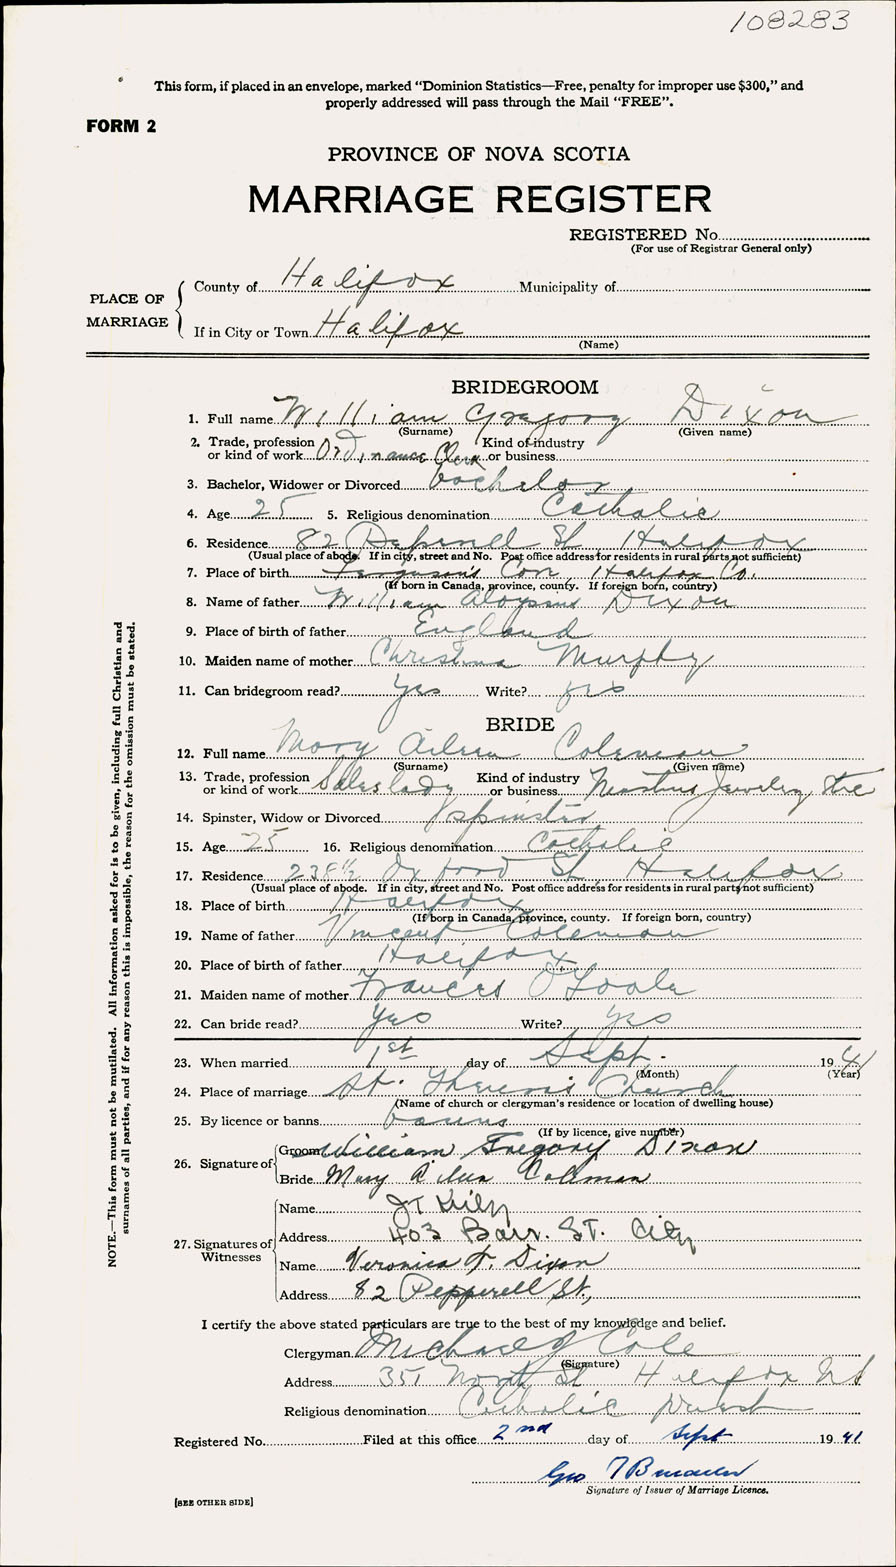 108283
This form, if placed in an envelope, marked "Dominion Statistics—Free, penalty for improper use $300," and
properly addressed will pass through the Mail "FREE".
FORM 2
PROVINCE OF NOVA SCOTIA
MARRIAGE REGISTER
REGISTERED No.
(For use of Registrar General only)
PLACE OF MARRIAGE
County of Halifax Municipality of
If in City or Town Halifax
(Name)
BRIDEGROOM
1. Full name William Gregory Dixon
(Surname) (Given name)
2. Trade, profession or kind of work Ordinance Clerk Kind of industry or business
3. Bachelor, Widower or Divorced bachelor
4. Age 25 5. Religious denomination Catholic
6. Residence 82 St Halifax
(Usual place of abode. If in city, street and No. Post office address for residents in rural parts not sufficient)
7. Place of birth Ferguson's Cov, Halifax Co.
(If born in Canada, province, county. If foreign born, country)
8. Name of father William Aloysius Dixon
9. Place of birth of father England
10. Maiden name of mother Christina Murphy
11. Can bridegroom read? yes Write? yes
BRIDE
12. Full name Mary Aileen Coleman
(Surname) (Given name)
13. Trade, profession or kind of work Saleslady Kind of industry or business Jewelry
14. Spinster, Widow or Divorced spinster
15. Age 25 16. Religious denomination Catholic
17. Residence 238½ Oxford St, Halifax
(Usual place of abode. If in city, street and No. Post office address for residents in rural parts not sufficient)
18. Place of birth Halifax
(If born in Canada, province, county. If foreign born, country)
19. Name of father Vincent Coleman
20. Place of birth of father Halifax
21. Maiden name of mother Frances O'Toole
22. Can bride read? Yes Write? yes
23. When married 1st day of Sept. 1941
(Month) (Year)
24. Place of marriage St. Theresa's Church
(Name of church or clergyman's residence or location of dwelling house)
25. By licence or banns banns
(If by licence, give number)
26. Signature of
Groom William Gregory Dixon
Bride Mary Aileen Coleman
27. Signatures of Witnesses
Name JT Kiely
Address 403 Barr. St. City
Name Veronica F. Dixon
Address 82 Pepperell St,
I certify the above stated particulars are true to the best of my knowledge and belief.
Clergyman Michael J Cole
(Signature)
Address 351 North St Halifax NS
Religious denomination Catholic priest
Registered No. Filed at this office 2nd day of Sept 1941
Geo T
Signature of Issuer of Marriage Licence.
[SEE OTHER SIDE]
NOTE.—This form must not be mutilated. All information asked for is to be given, including full Christian and
surnames of all parties, and if for any reason this is impossible, the reason for the omission must be stated.